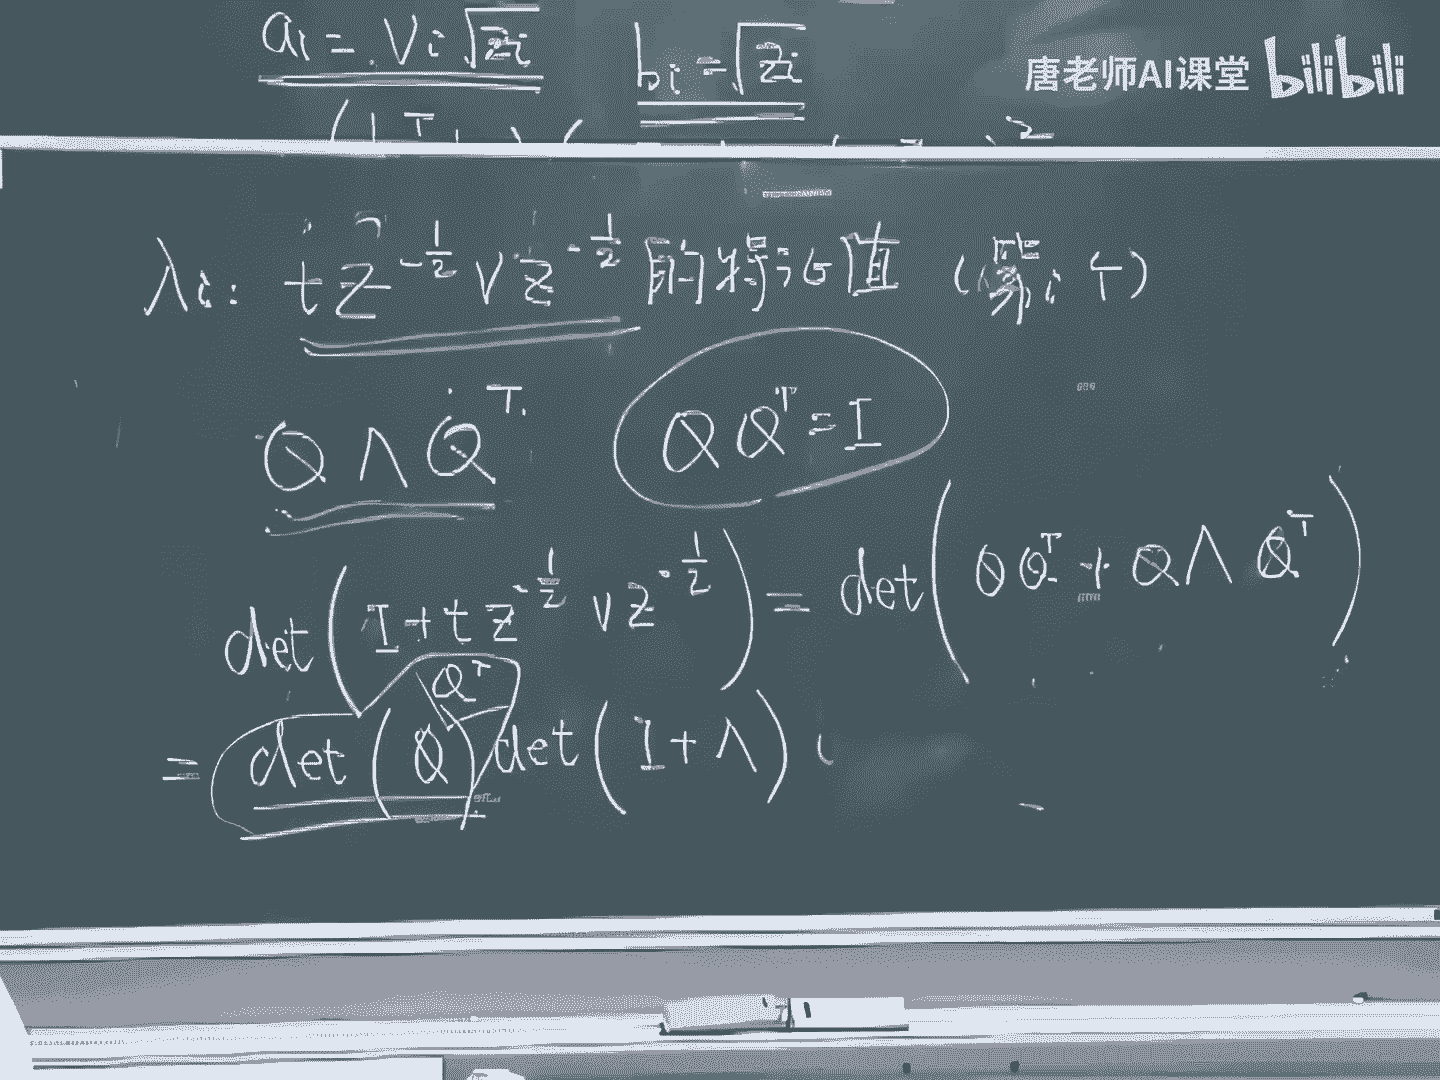 aᵢ = Vᵢ √zᵢ   bᵢ = √zᵢ
唐老师AI课堂 bilibili
λᵢ: t z^{-1/2} v z^{-1/2} 的特征值 (第i个)
Q Λ Q^T   QQ^T = I
det(I + t z^{-1/2} v z^{-1/2}) = det(QQ^T + QΛQ^T)
Q^T
= det(Q) det(I + Λ) (